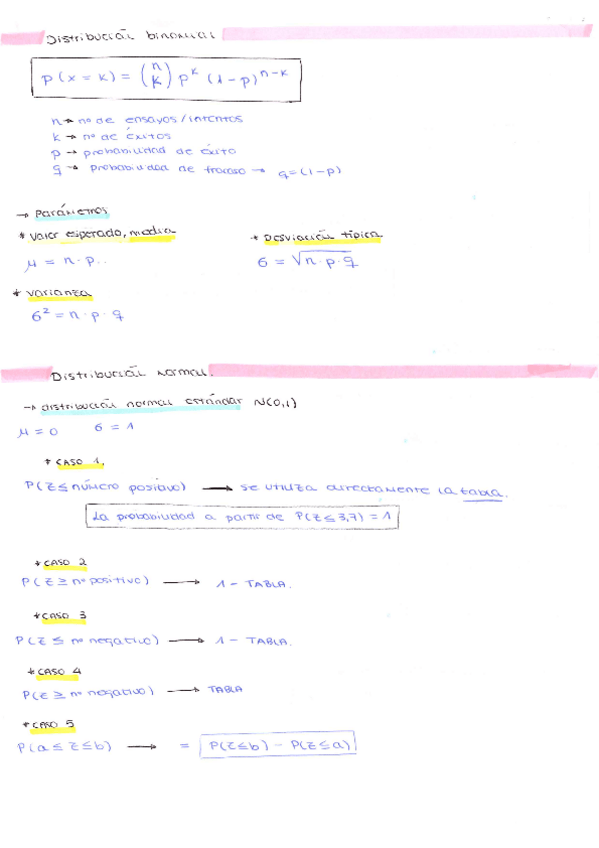 Distribución binomial
p(x = k) = (n k) p^k (1-p)^n-k
n → nº de ensayos/intentos
k → nº de éxitos
p → probabilidad de éxito
q → probabilidad de fracaso → q=(1-p)
→ parámetros
* valor esperado, media
* Desviación típica
μ = n · p..
σ = √n · p · q
* varianza
σ² = n · p · q
Distribución normal.
→ distribución normal estándar N(0,1)
μ = 0 σ = 1
* CASO 1.
P(Z ≤ número positivo) → se utiliza directamente la tabla.
La probabilidad a partir de P(Z ≤ 3,7) = 1
* CASO 2
P(Z ≥ nº positivo) → 1 - TABLA.
* CASO 3
P(Z ≤ nº negativo) → 1 - TABLA.
* CASO 4
P(Z ≥ nº negativo) → TABLA
* CASO 5
P(a ≤ Z ≤ b) → = P(Z≤b) - P(Z≤a)